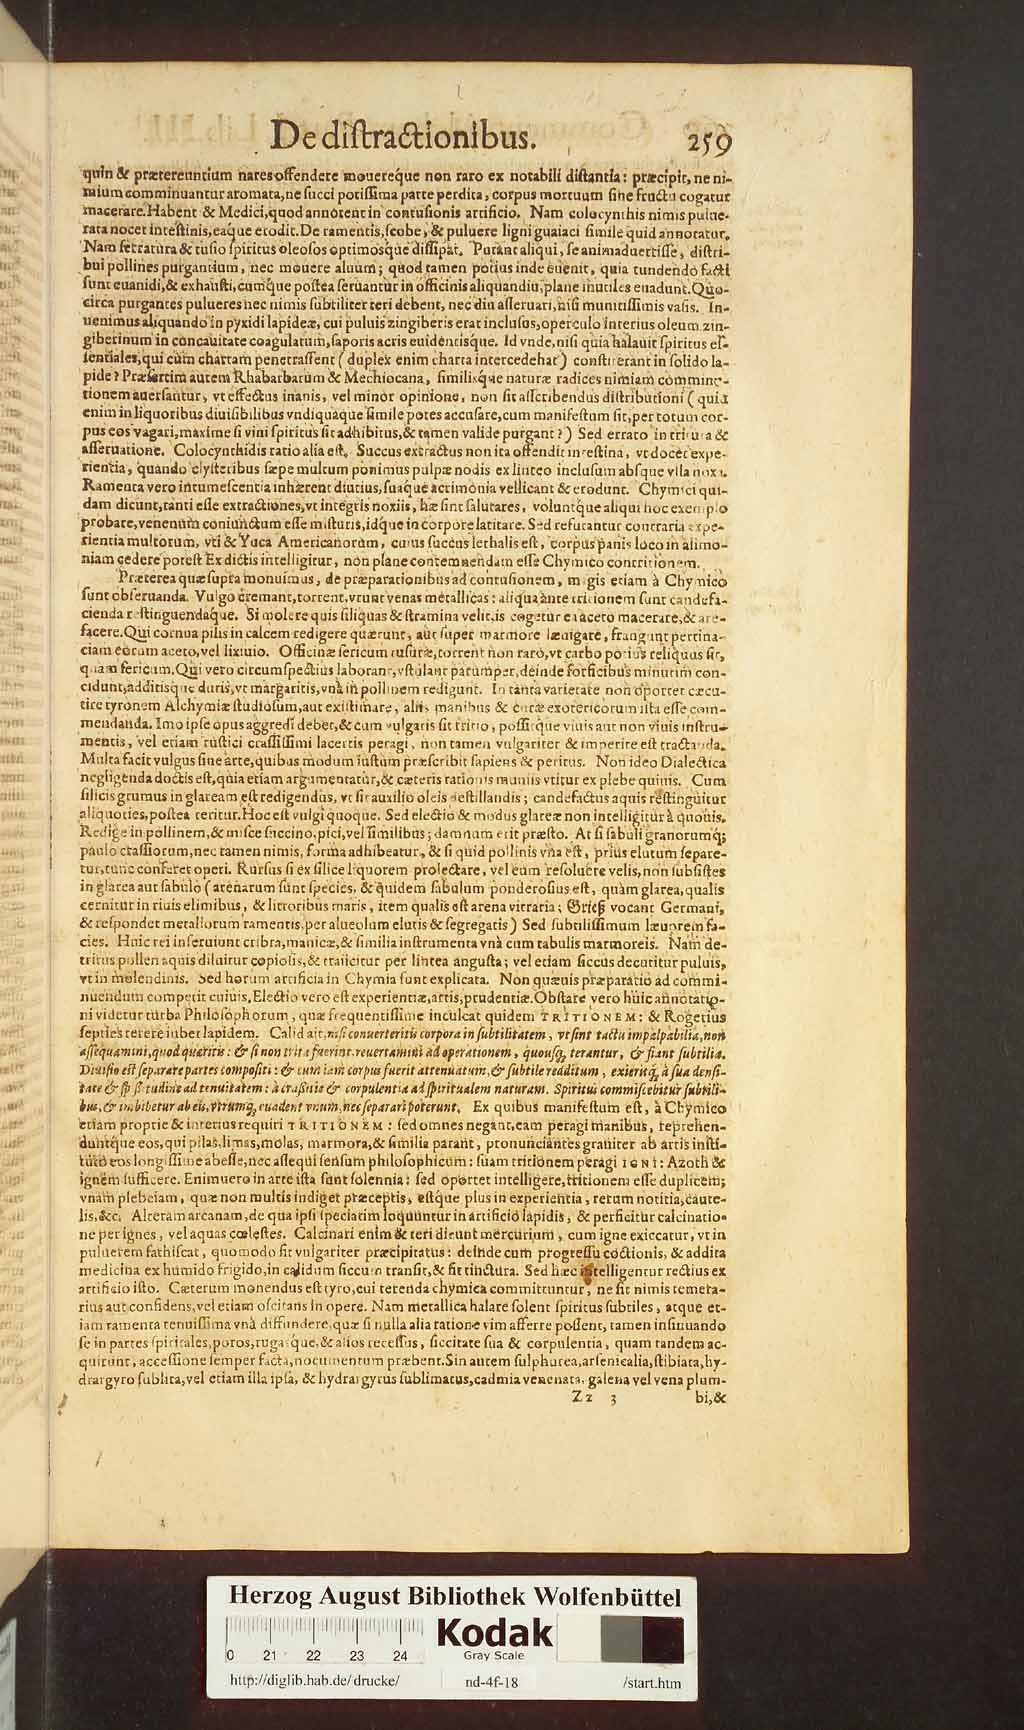 De distractionibus. 259
quin & prætereuntium nares offendere mouereque non raro ex notabili distantia: præcipit, ne ni-
mium comminuantur aromata, ne succi potissima parte perdita, corpus mortuum sine fructu cogatur
macerare. Habent & Medici, quod annotent in contusionis artificio. Nam colocynthis nimis pulue-
rata nocet intestinis, eaque erodit. De ramentis, scobe, & puluere ligni guaiaci simile quid annotatur.
Nam serratura & tusio spiritus oleosos optimosque dissipat. Putant aliqui, se animaduertisse, distri-
bui pollines purgantium, nec mouere aluum; quod tamen potius inde euenit, quia tundendo facti
sunt euanidi, & exhausti, cumque postea seruantur in officinis aliquandiu, plane inutiles euadunt. Quo-
circa purgantes pulueres nec nimis subtiliter teri debent, nec diu asseruari, nisi munitissimis vasis. In-
uenimus aliquando in pyxidi lapideæ, cui puluis zingiberis erat inclusus, operculo interius oleum zin-
giberinum in concauitate coagulatum, saporis acris euidentisque. Id vnde, nisi quia halauit spiritus es-
sentiales, qui cum chartam penetrassent (duplex enim charta intercedebat) constiterant in solido la-
pide? Præsertim autem Rhabarbarum & Mechiocana, similisque naturæ radices nimiam comminu-
tionem auersantur, vt effectus inanis, vel minor opinione, non sit asscribendus distributioni (quia
enim in liquoribus diuisibilibus vndiquaque simile potes accusare, cum manifestum sit, per totum cor-
pus eos vagari, maxime si vini spiritus sit adhibitus, & tamen valide purgant?) Sed errato in tritura &
asseruatione. Colocynthidis ratio alia est. Succus extractus non ita offendit intestina, vt docet expe-
rientia, quando clysteribus sæpe multum ponimus pulpæ nodis ex linteo inclusum absque vlla noxa.
Ramenta vero intumescentia inhærent diutius, suaque acrimonia vellicant & erodunt. Chymici qui-
dam dicunt, tanti esse extractiones, vt integris noxiis, hæ sint salutares, voluntque aliqui hoc exemplo
probare, venenum coniunctum esse misturis, idque in corpore latitare. Sed refutantur contraria expe-
rientia multorum, vti & Yuca Americanorum, cuius succus lethalis est, corpus panis loco in alimo-
niam cedere potest. Ex dictis intelligitur, non plane contemnendam esse Chymico contritionem.
Præterea quæ supra monuimus, de præparationibus ad contusionem, magis etiam à Chymico
sunt obseruanda. Vulgo cremant, torrent, vrunt venas metallicas: aliqua ante tritionem sunt candefa-
cienda restinguendaque. Si molere quis siliquas & stramina velit, is cogetur ea aceto macerare, & are-
facere. Qui cornua pilis in calcem redigere quærunt, aut super marmore læuigare, frangunt pertina-
ciam eorum aceto, vel lixiuio. Officinæ sericum tusuræ, torrent non raro, vt carbo potius reliquus sit,
quam sericum. Qui vero circumspectius laborant, vstulant parumper, deinde forficibus minutim con-
cidunt, additisque duris, vt margaritis, vnà in pollinem redigunt. In tanta varietate non oportet cæcu-
tire tyronem Alchymiæ studiosum, aut existimare, aliis manibus & curæ exotericorum ista esse com-
mendanda. Imo ipse opus aggredi debet, & cum vulgaris sit tritio, possitque viuis aut non viuis instru-
mentis, vel etiam rustici crassissimi lacertis peragi, non tamen vulgariter & imperite est tractanda.
Multa facit vulgus sine arte, quibus modum iustum præscribit sapiens & peritus. Non ideo Dialectica
negligenda doctis est, quia etiam argumentatur, & cæteris rationis muniis vtitur ex plebe quiuis. Cum
silicis grumus in glaream est redigendus, vt sit auxilio oleis destillandis; candefactus aquis restinguitur
aliquoties, postea teritur. Hoc est vulgi quoque. Sed electio & modus glareæ non intelligitur à quouis.
Redige in pollinem, & misce succino, pici, vel similibus; damnum erit præsto. At si sabuli granorumq;
paulo crassiorum, nec tamen nimis, forma adhibeatur, & si quid pollinis vna est, prius elutum separe-
tur, tunc conferet operi. Rursus si ex silice liquorem prolectare, vel eum resoluere velis, non subsistes
in glarea aut sabulo (arenarum sunt species, & quidem sabulum ponderosius est, quàm glarea, qualis
cernitur in riuis elimibus, & littoribus maris, item qualis est arena vitraria; Grieß vocant Germani,
& respondet metallorum ramentis, per alueolum elutis & segregatis) Sed subtilissimum læuorem fa-
cies. Huic rei inseruiunt cribra, manicæ, & similia instrumenta vnà cum tabulis marmoreis. Nam de-
tritus pollen aquis diluitur copiosis, & traiicitur per lintea angusta; vel etiam siccus decutitur puluis,
vt in molendinis. Sed horum artificia in Chymia sunt explicata. Non quæuis præparatio ad commi-
nuendum competit cuiuis, Electio vero est experientiæ, artis, prudentiæ. Obstare vero huic annotatio-
ni videtur turba Philosophorum, quæ frequentissime inculcat quidem TRITIONEM: & Rogerius
septies terere iubet lapidem. Calid ait, nisi conuerteritis corpora in subtilitatem, vt sint tactu impalpabilia, non
assequamini, quod quæritis: & si non trita fuerint, reuertamini ad operationem, quousq; terantur, & fiant subtilia.
Diuisio est separare partes compositi: & cum iam corpus fuerit attenuatum, & subtile redditum, exieritq; à sua densi-
tate & spissitudine ad tenuitatem: à crassitie & corpulentia ad spiritualem naturam. Spiritus commiscebitur subtili-
bus, & imbibetur ab eis, vtrumq; euadent vnum, nec separari poterunt. Ex quibus manifestum est, à Chymico
etiam proprie & interius requiri TRITIONEM: sed omnes negant, eam peragi manibus, reprehen-
duntque eos, qui pilas, limas, molas, marmora, & similia parant, pronunciantes grauiter ab artis insti-
tuto eos longissime abesse, nec assequi sensum philosophicum: suam tritionem peragi IGNI: Azoth &
ignem sufficere. Enimuero in arte ista sunt solennia: sed oportet intelligere, tritionem esse duplicem;
vnam plebeiam, quæ non multis indiget præceptis, estque plus in experientia, rerum notitia, caute-
lis, &c. Alteram arcanam, de qua ipsi speciatim loquuntur in artificio lapidis, & perficitur calcinatio-
ne per ignes, vel aquas cœlestes. Calcinari enim & teri dicunt mercurium, cum igne exiccatur, vt in
puluerem fathiscat, quomodo fit vulgariter præcipitatus: deinde cum progressu coctionis, & addita
medicina ex humido frigido, in calidum siccum transit, & fit tinctura. Sed hæc intelligentur rectius ex
artificio isto. Cæterum monendus est tyro, cui terenda chymica committuntur, ne sit nimis temera-
rius aut confidens, vel etiam oscitans in opere. Nam metallica halare solent spiritus subtiles, atque et-
iam ramenta tenuissima vnà diffundere, quæ si nulla alia ratione vim afferre possent, tamen insinuando
se in partes spiritales, poros, rugasque, & alios recessus, siccitate sua & corpulentia, quam tandem ac-
quirunt, accessione semper facta, nocumentum præbent. Sin autem sulphurea, arsenicalia, stibiata, hy-
drargyro sublita, vel etiam illa ipsa, & hydrargyrus sublimatus, cadmia venenata, galena vel vena plum-
Zz 3 bi, &
Herzog August Bibliothek Wolfenbüttel
Kodak
Gray Scale
0 21 22 23 24
http://diglib.hab.de/drucke/ nd-4f-18 /start.htm